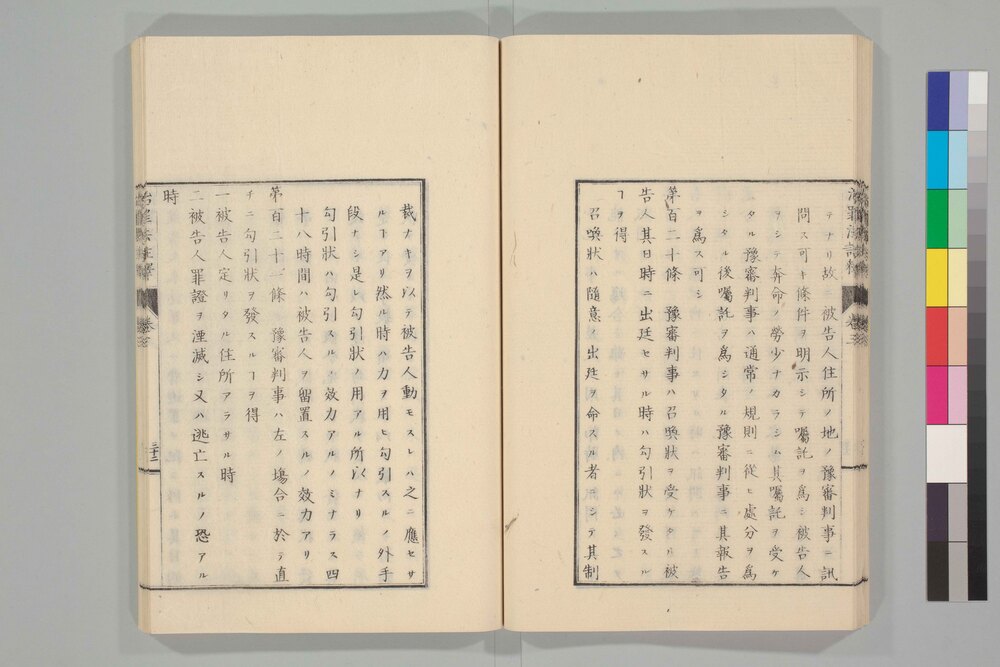 テナリ故ニ被告人住所ノ地ノ豫審判事ニ訊
問ス可キ條件ヲ明示シテ囑託ヲ爲シ被告人
ヲシテ奔命ノ勞少ナカラシム其囑託ヲ受ケ
タル豫審判事ハ通常ノ規則ニ從ヒ處分ヲ爲
シタル後囑託ヲ爲シタル豫審判事ニ其報告
ヲ爲ス可シ
第百二十條 豫審判事ハ召喚狀ヲ受ケタル被
告人其日時ニ出廷セサル時ハ勾引狀ヲ發スル
ヿヲ得
召喚狀ハ隨意ニ出廷ヲ命スル者ニシテ其制
裁ナキヲ以テ被告人動モスレハ之ニ應セサ
ルヿアリ然ル時ハ力ヲ用ヒ勾引スルノ外手
段ナシ是レ勾引狀ノ用アル所以ナリ
勾引狀ハ勾引スルノ效力アルノミナラス四
十八時間ハ被告人ヲ留置スルノ效力アリ
第百二十一條 豫審判事ハ左ノ塲合ニ於テ直
チニ勾引狀ヲ發スルヿヲ得
一 被告人定リタル住所アラサル時
二 被告人罪證ヲ湮滅シ又ハ逃亡スルノ恐アル
時
治罪法註釋 卷三
二十二